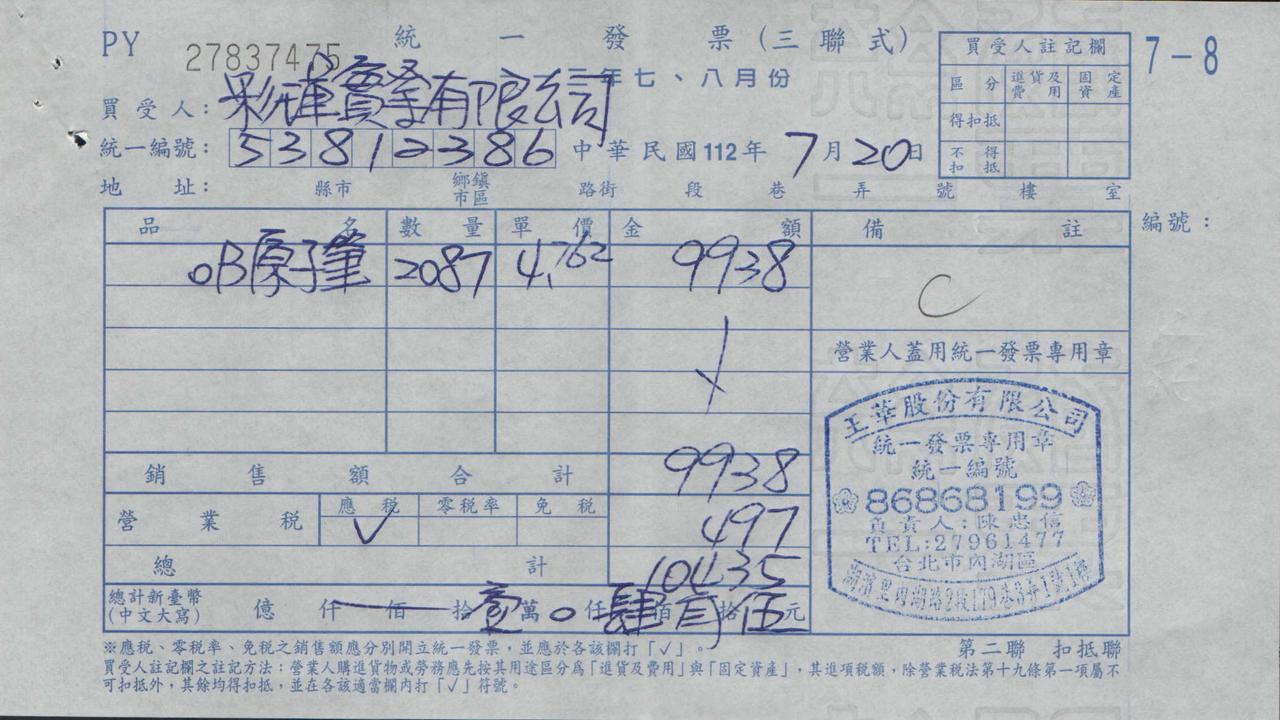 PY 27837475 統一發票(三聯式) 7-8
年七、八月份
買受人: 有限公司
統一編號: 53812386 中華民國112年7月20日
地址: 縣市 鄉鎮市區 路街 段 巷 弄 號 樓 室
買受人註記欄
區分 進貨及費用 固定資產
得扣抵
不得扣抵
品名 數量 單價 金額 備註 編號:
OB原子筆 2087 4.762 9938
C
營業人蓋用統一發票專用章
銷售額合計 9938
營業稅 應稅 零稅率 免稅 497
V
總計 10435
總計新臺幣(中文大寫) 億 仟 佰 拾 壹萬 0仟 肆佰 拾 伍元
王華股份有限公司
統一發票專用章
統一編號
86868199
負責人:陳忠信
TEL:27961477
台北市內湖區
湖濱里內湖路2段179巷3弄1號1樓
※應稅、零稅率、免稅之銷售額應分別開立統一發票,並應於各該欄打「√」。
第二聯 扣抵聯
買受人註記欄之註記方法:營業人購進貨物或勞務應先按其用途區分為「進貨及費用」與「固定資產」,其進項稅額,除營業稅法第十九條第一項屬不
可扣抵外,其餘均得扣抵,並在各該適當欄內打「√」符號。